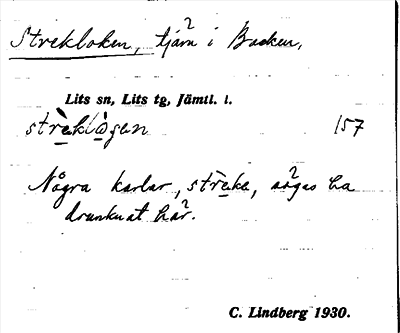 Strekloken, tjärn i Backen,
Lits sn, Lits tg, Jämtl. l.
strèklògen 157
Några karlar, strèka, säges ha
drunknat här.
C. Lindberg 1930.